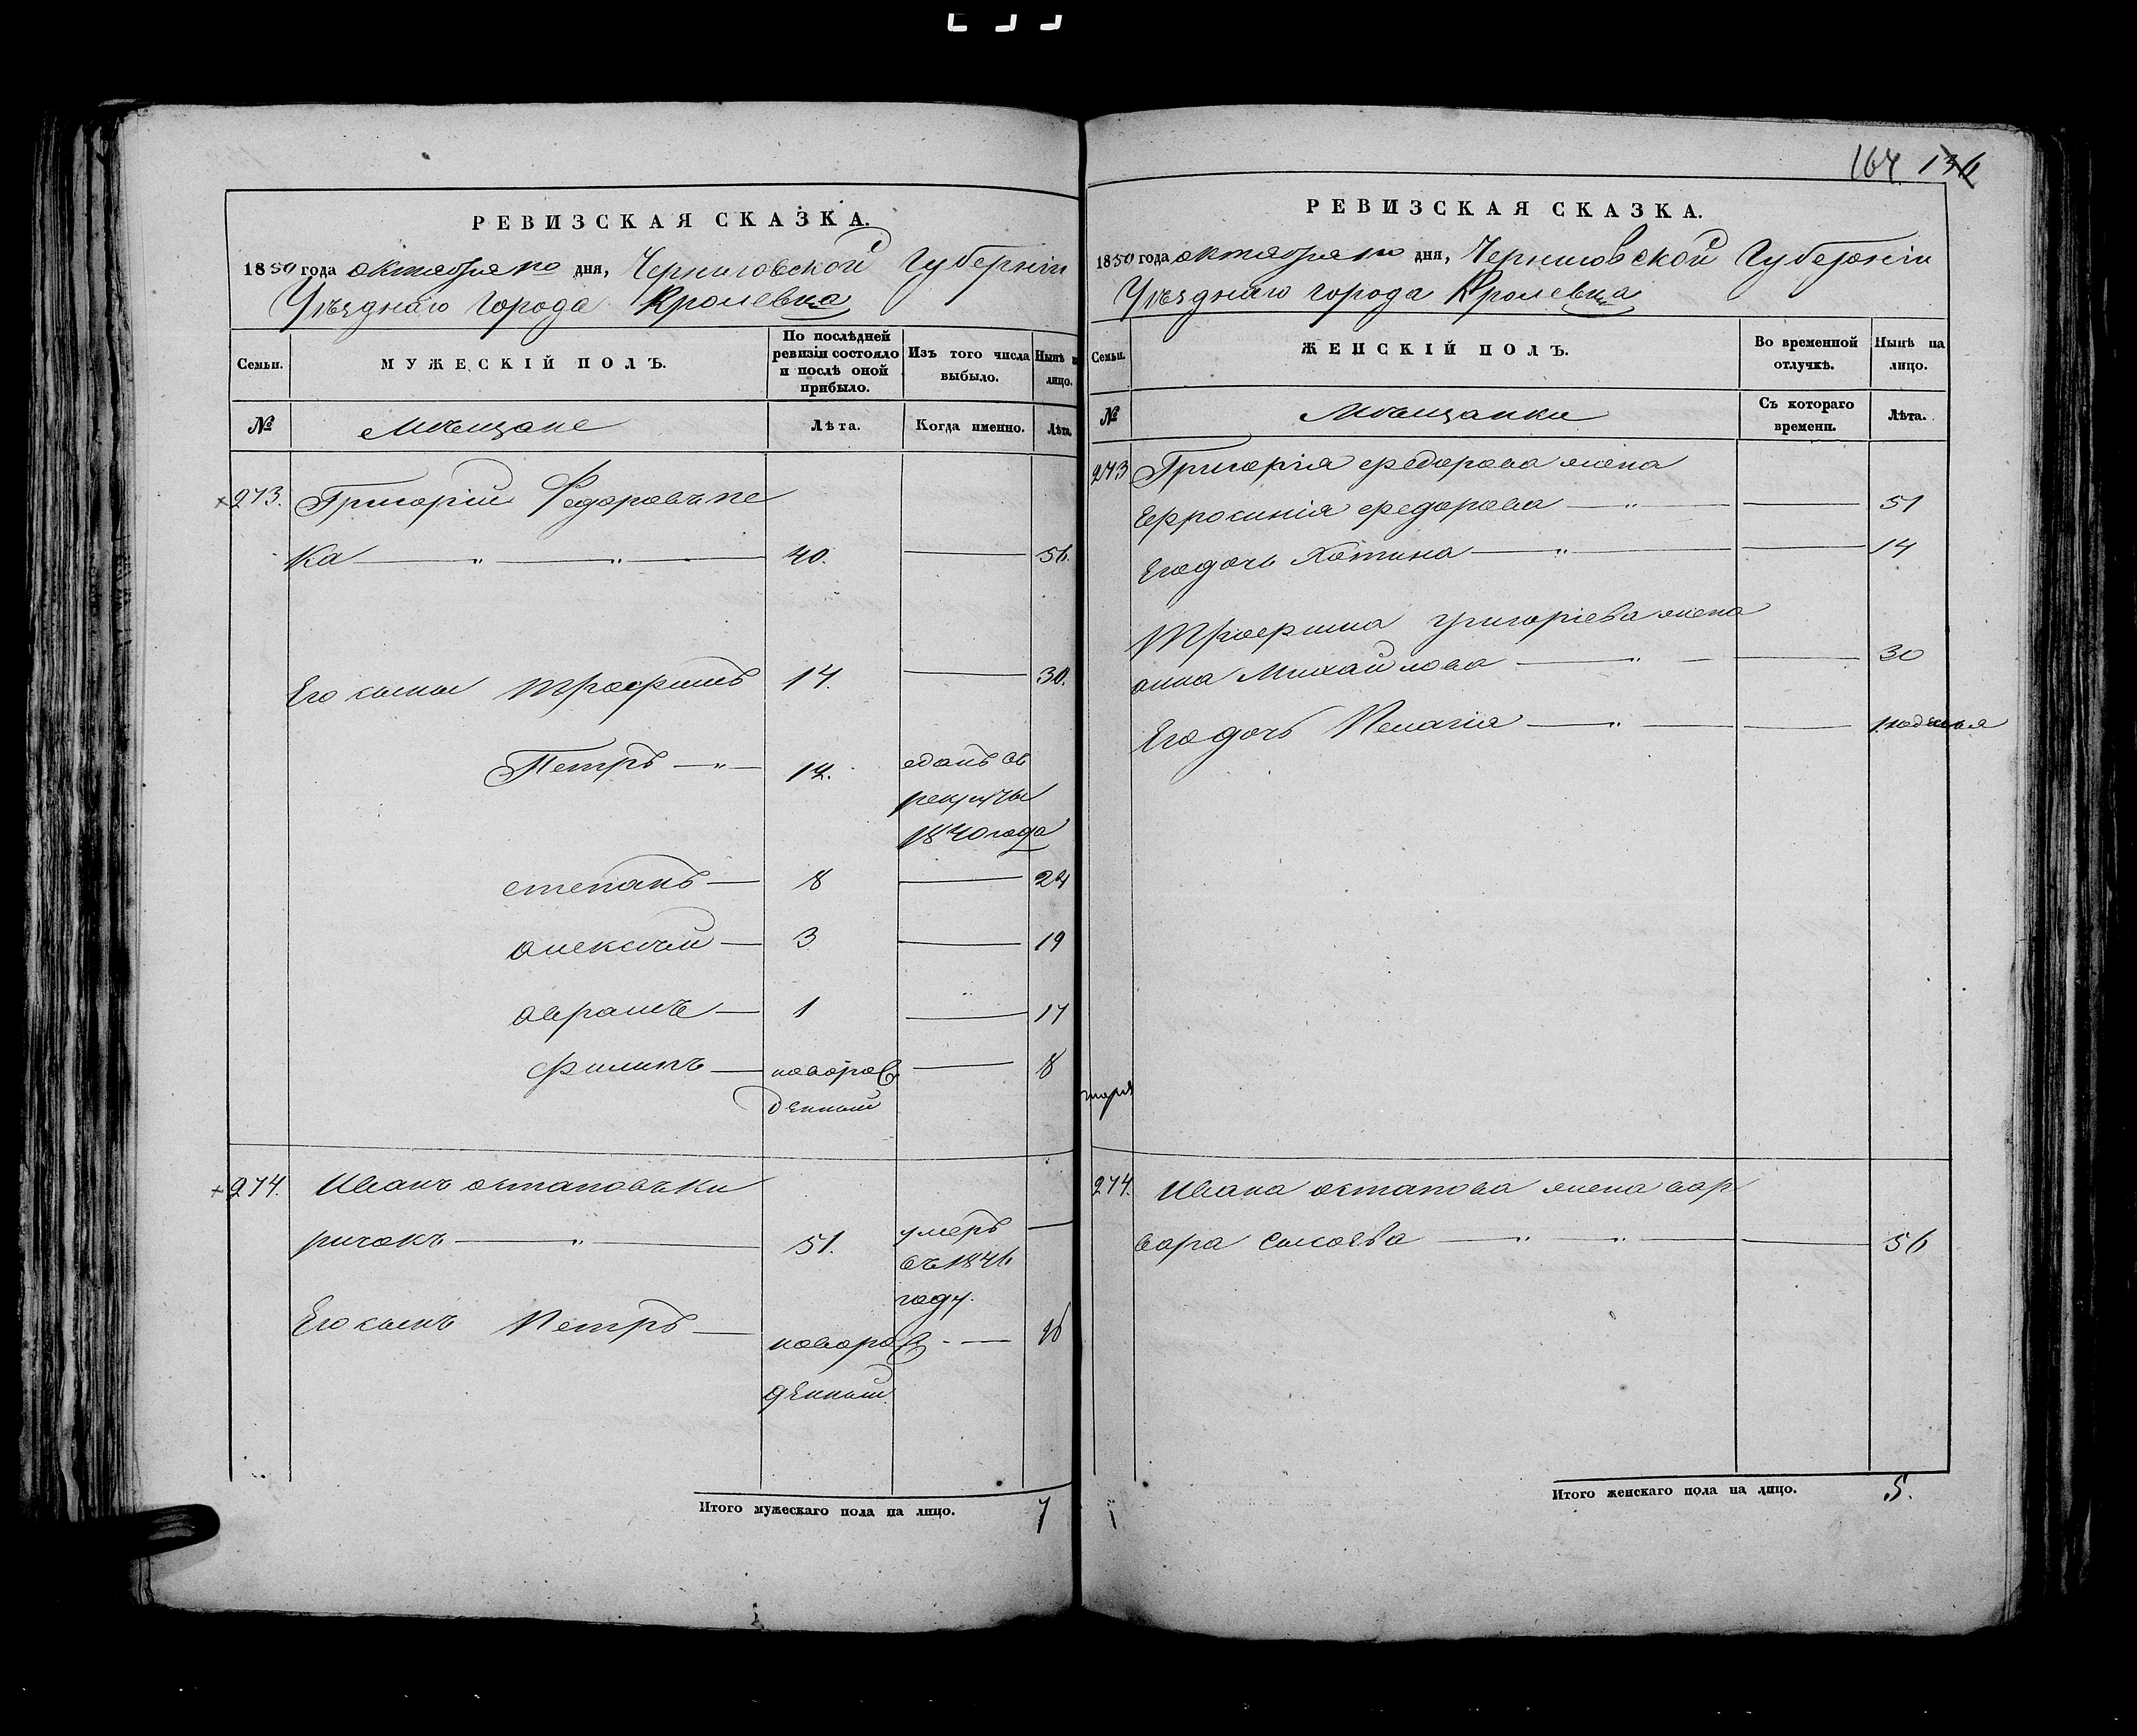 РЕВИЗСКАЯ СКАЗКА.
1850 года октября дня, Черниговской Губерніи
Уѣзднаго Города Кролевца
Семьи.
МУЖЕСКІЙ ПОЛЪ.
По послѣдней ревизіи состояло и послѣ оной прибыло.
Изъ того числа выбыло.
Нынѣ на лицо.
№
Мѣщане
Лѣта.
Когда именно.
Лѣта.
273. Григорій Федоровъ пе
ка — „ — „ — 40. — 56.
Его сыны Трофимъ 14. — 30.
Петръ — „ — 12. зданъ въ
рекруты
1840 года
степанъ — 8 — 24
алексѣй — 3 — 19
аврамъ — 1 — 17
филипъ — новорож — 8
денный
274. Иванъ остаповъ ки
ричокъ — „ — 51. умеръ —
въ 1846
году.
Его сынъ Петръ — новорож - — 16
денный
Итого мужескаго пола на лицо. 7
164 136
РЕВИЗСКАЯ СКАЗКА.
1850 года октября дня, Черниговской Губерніи
Уѣзднаго города Кролевца
Семьи.
ЖЕНСКІЙ ПОЛЪ.
Во временной отлучкѣ.
Нынѣ на лицо.
№
Мѣщанки
Съ котораго времени.
Лѣта.
273 Григорія федорова жена
Ефросинія федорова — „ — — 51
Его дочь — „ — — 14
Трофима григоріева жена
анна Михайлова — „ — — 30
Его дочь Пелагія — „ — — 1
274. Ивана остапова жена вар
вара Сысоева — „ — „ — — 56
Итого женскаго пола на лицо. 5.